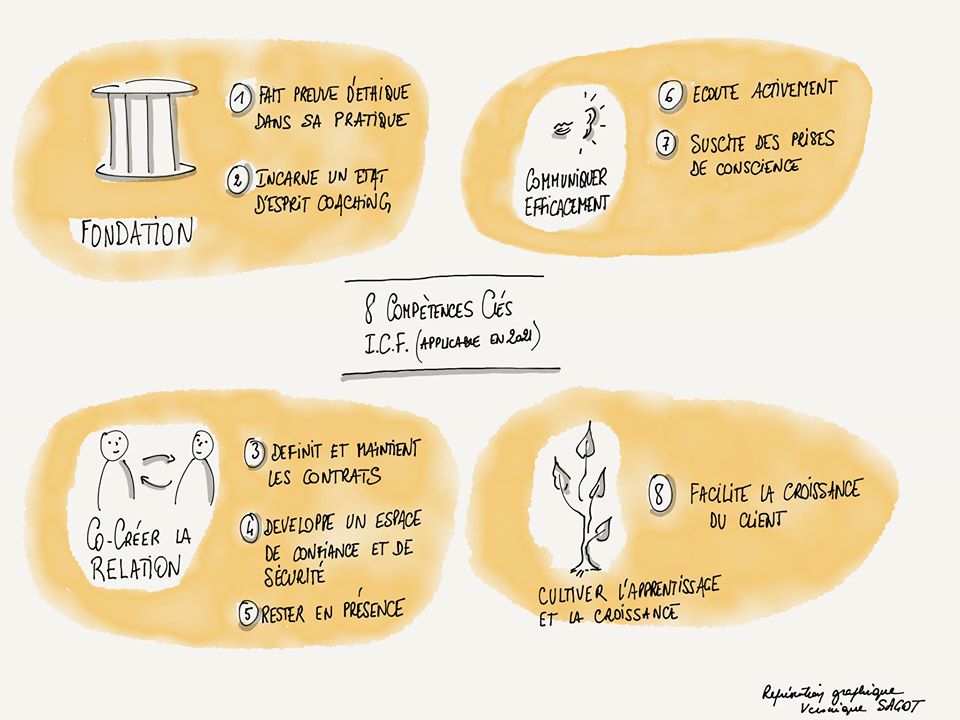 1 FAIT PREUVE D'ÉTHIQUE
DANS SA PRATIQUE
2 INCARNE UN ETAT
D'ESPRIT COACHING
FONDATION
6 ECOUTE ACTIVEMENT
7 SUSCITE DES PRISES
DE CONSCIENCE
COMMUNIQUER
EFFICACEMENT
8 COMPÈTENCES CLÉS
I.C.F. (APPLICABLE EN 2021)
3 DEFINIT ET MAINTIENT
LES CONTRATS
4 DEVELOPPE UN ESPACE
DE CONFIANCE ET DE
SÉCURITÉ
5 RESTER EN PRÉSENCE
CO-CRÉER LA
RELATION
8 FACILITE LA CROISSANCE
DU CLIENT
CULTIVER L'APPRENTISSAGE
ET LA CROISSANCE
graphique
Véronique SAGOT